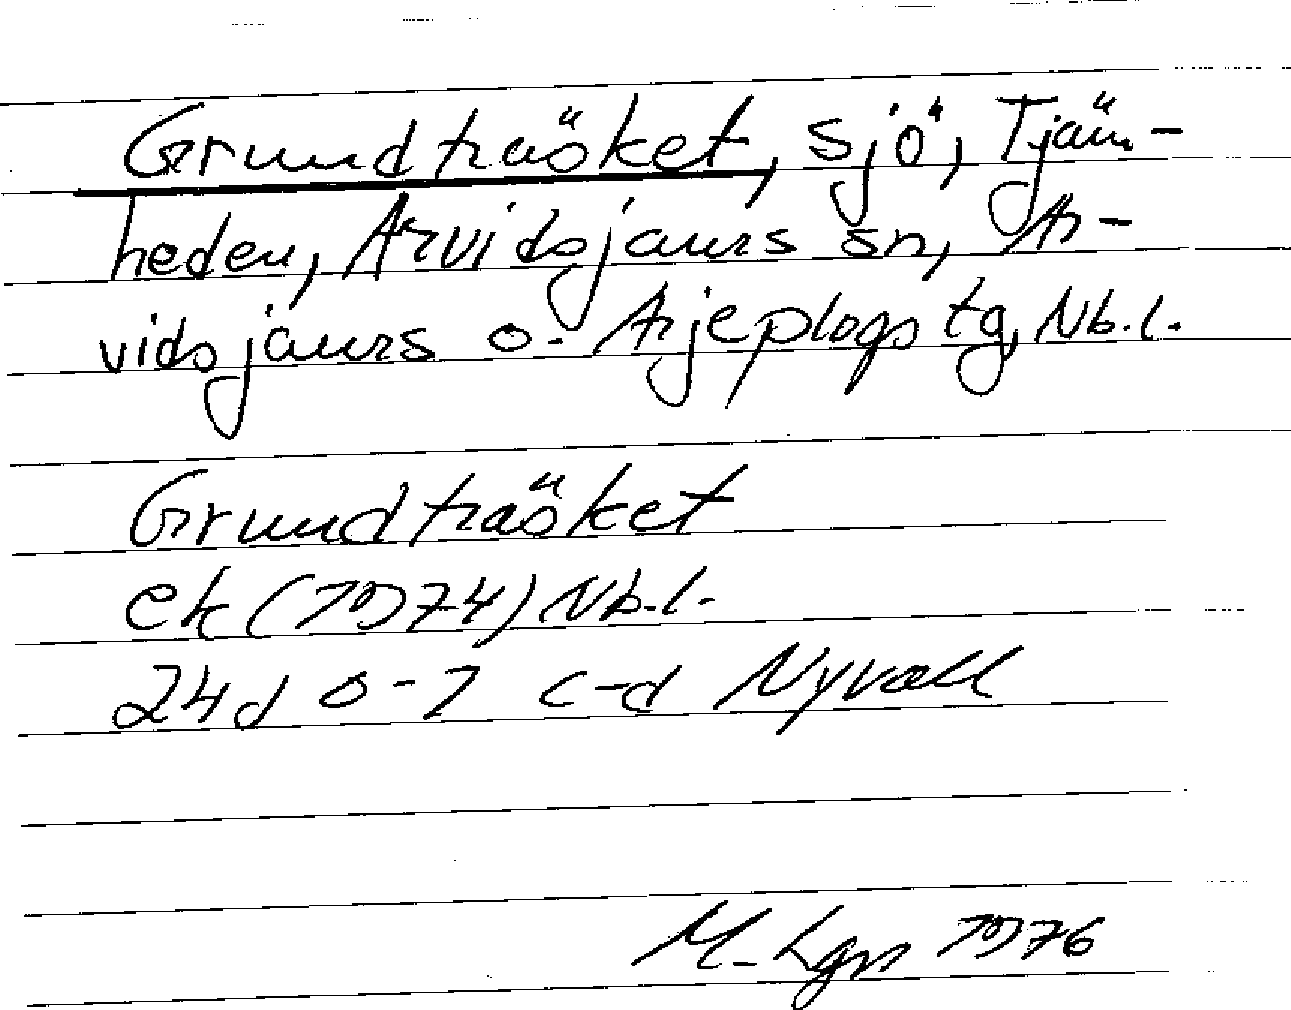 Grundträsket, sjö, Tjärn-
heden, Arvidsjaurs sn, Ar-
vidsjaurs o. Arjeplogs tg, Nb.l.
Grundträsket
ek (1974) Nb.l.
24d 0-1 c-d Nyvall
M. Lgn 1976